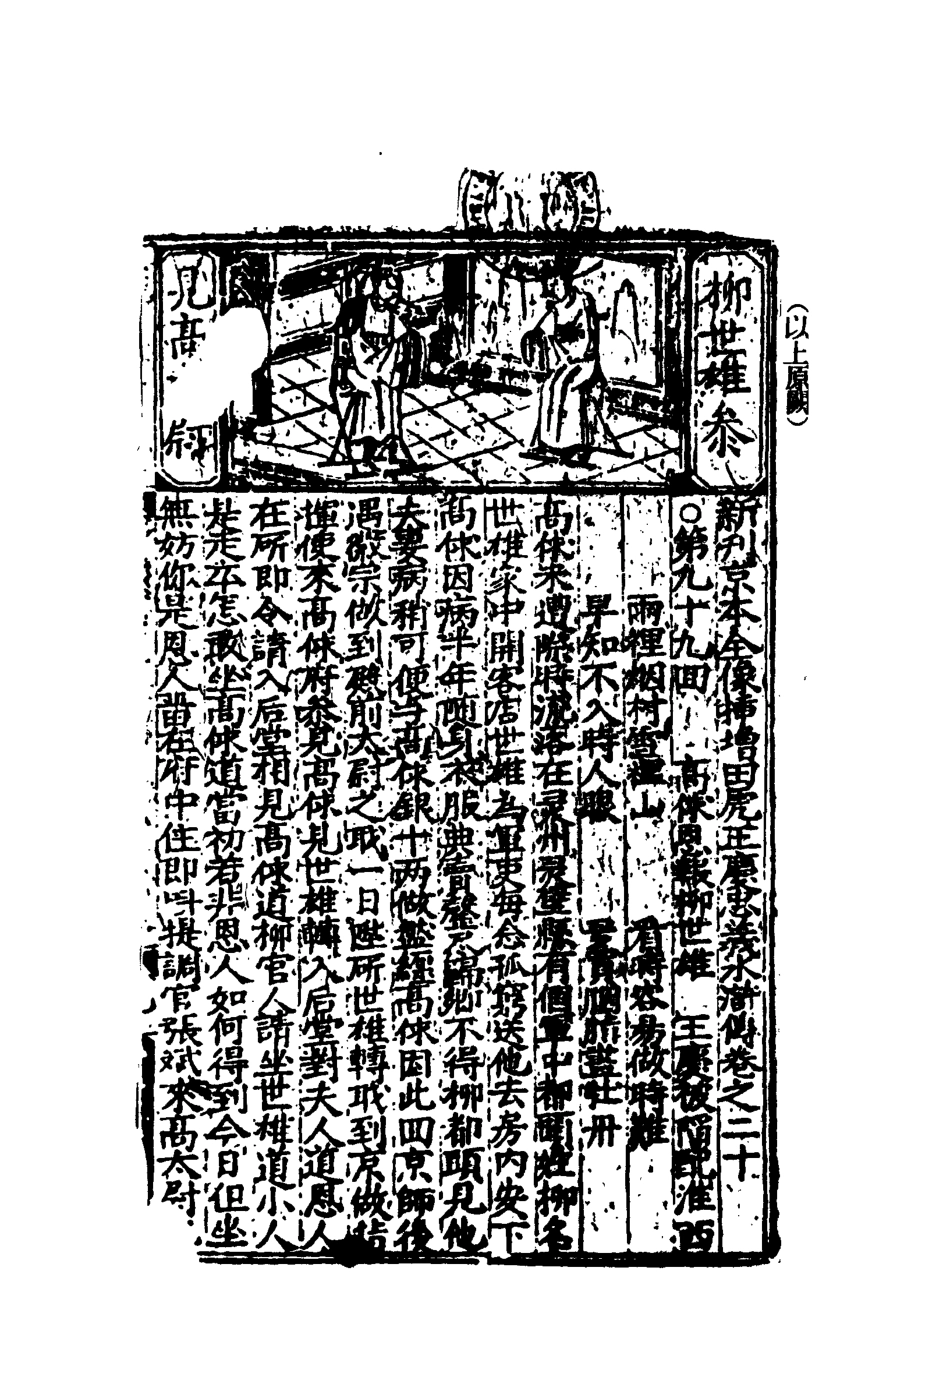 （以上原闕）
柳世雄参
見高
尉
新刋京本全像揷増田虎王慶忠義水滸傳卷之二十
○第九十九回　高俅恩報柳世雄　王慶被陷配淮西
雨裡烟村雪裡山　看時容易做時難
早知不入時人眼　多買胭脂畫牡丹
高俅未遭際時流落在灵州灵璧縣有個軍中都頭姓柳名
世雄家中開客店世雄为軍吏每念孤窮送他去房内安下
高俅因病半年随身衣服典賣罄尽歸他不得柳都頭見他
夫妻病稍可便与高俅銀十两做盤經高俅因此回京師後
遇徽宗做到殿前大尉之职一日陞所世雄轉职到京做
揮使來高俅府参見高俅見世雄轉入后堂對夫人道恩人
在所即令請入后堂相見高俅道柳官人請坐世雄道小人
是走卒怎敢坐高俅道當初若非恩人如何得到今日但坐
無妨你是恩人留在府中住即呌提調官張斌來高太尉